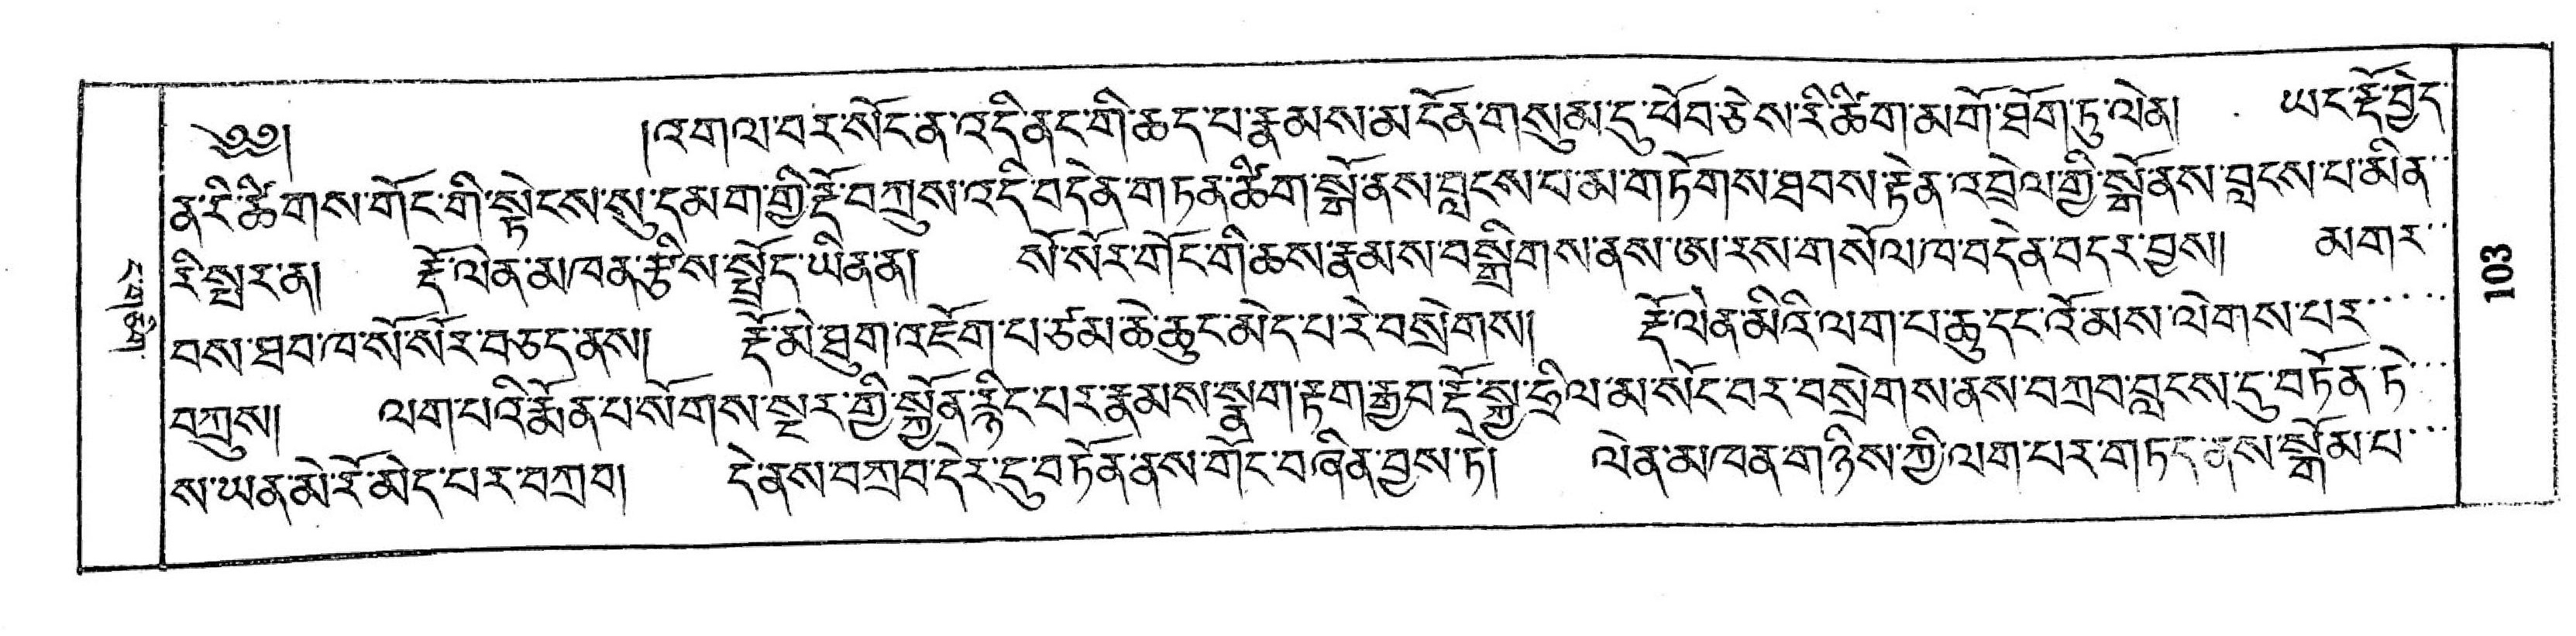 ༄༅། །འགལ་བར་སོང་ན་འདི་ནང་གི་ཆད་པ་རྣམས་མ་དོན་གསུམ་དུ་ཕོབ་ཅེས་རི་ཚིག་མགོ་ཐོག་ཏུ་ལེན། ཡང་རྡོ་བྱེད་
ན་རི་ཚིགས་གོང་གི་སྟེངས་སུ་དམག་གྱི་རྡོ་བཀྲུས་འདི་བདེན་གཏན་ཚིག་སྒོ་ནས་བླངས་པ་མ་གཏོགས་ཐབས་རྟེན་འབྲེལ་གྱི་སྒོ་ནས་བླངས་པ་མིན་
རི་སྦྱར་ན། རྡོ་ལེན་མ་ཁན་རྩིས་སྤྲོད་ཡིན་ན། སོ་སོར་གོང་གི་ཆས་རྣམས་བསྒྲིགས་ནས་ཨ་རས་གསོལ་ཁ་བདེན་བདར་བྱས།། མགར་
བས་ཐབ་ཁ་སོ་སོར་བཅད་ནས། རྡོ་མེ་ཐུག་འཇོག་པ་ཙམ་ཆེ་ཆུང་མེད་པ་རེ་བསྲེགས།། རྡོ་ལེན་མིའི་ལག་པ་ཆུ་དང་འོམས་ལེགས་པར་
བཀྲུས།། ལག་པའི་རྨོན་པ་སོགས་སྔར་གྱི་སྐྱོན་རྙིང་པར་རྣམས་སྣག་རྟག་རྒྱབ་རྡོ་སྐྱ་ཧྲིལ་མ་སོང་བར་བསྲེགས་ནས་བཀྲབ་བླངས་དུ་བཏོན་ཏེ་
ས་ཡན་མེ་རོ་མེད་པར་བཀྲབ། དེ་ནས་བཀྲབ་དེར་དུ་བཏོན་ནས་གོང་བཞིན་བྱས་ཏེ། ལེན་མ་ཁན་གཉིས་ཀྱི་ལག་པར་གཏད་ནས་སྒོམ་པ་
103